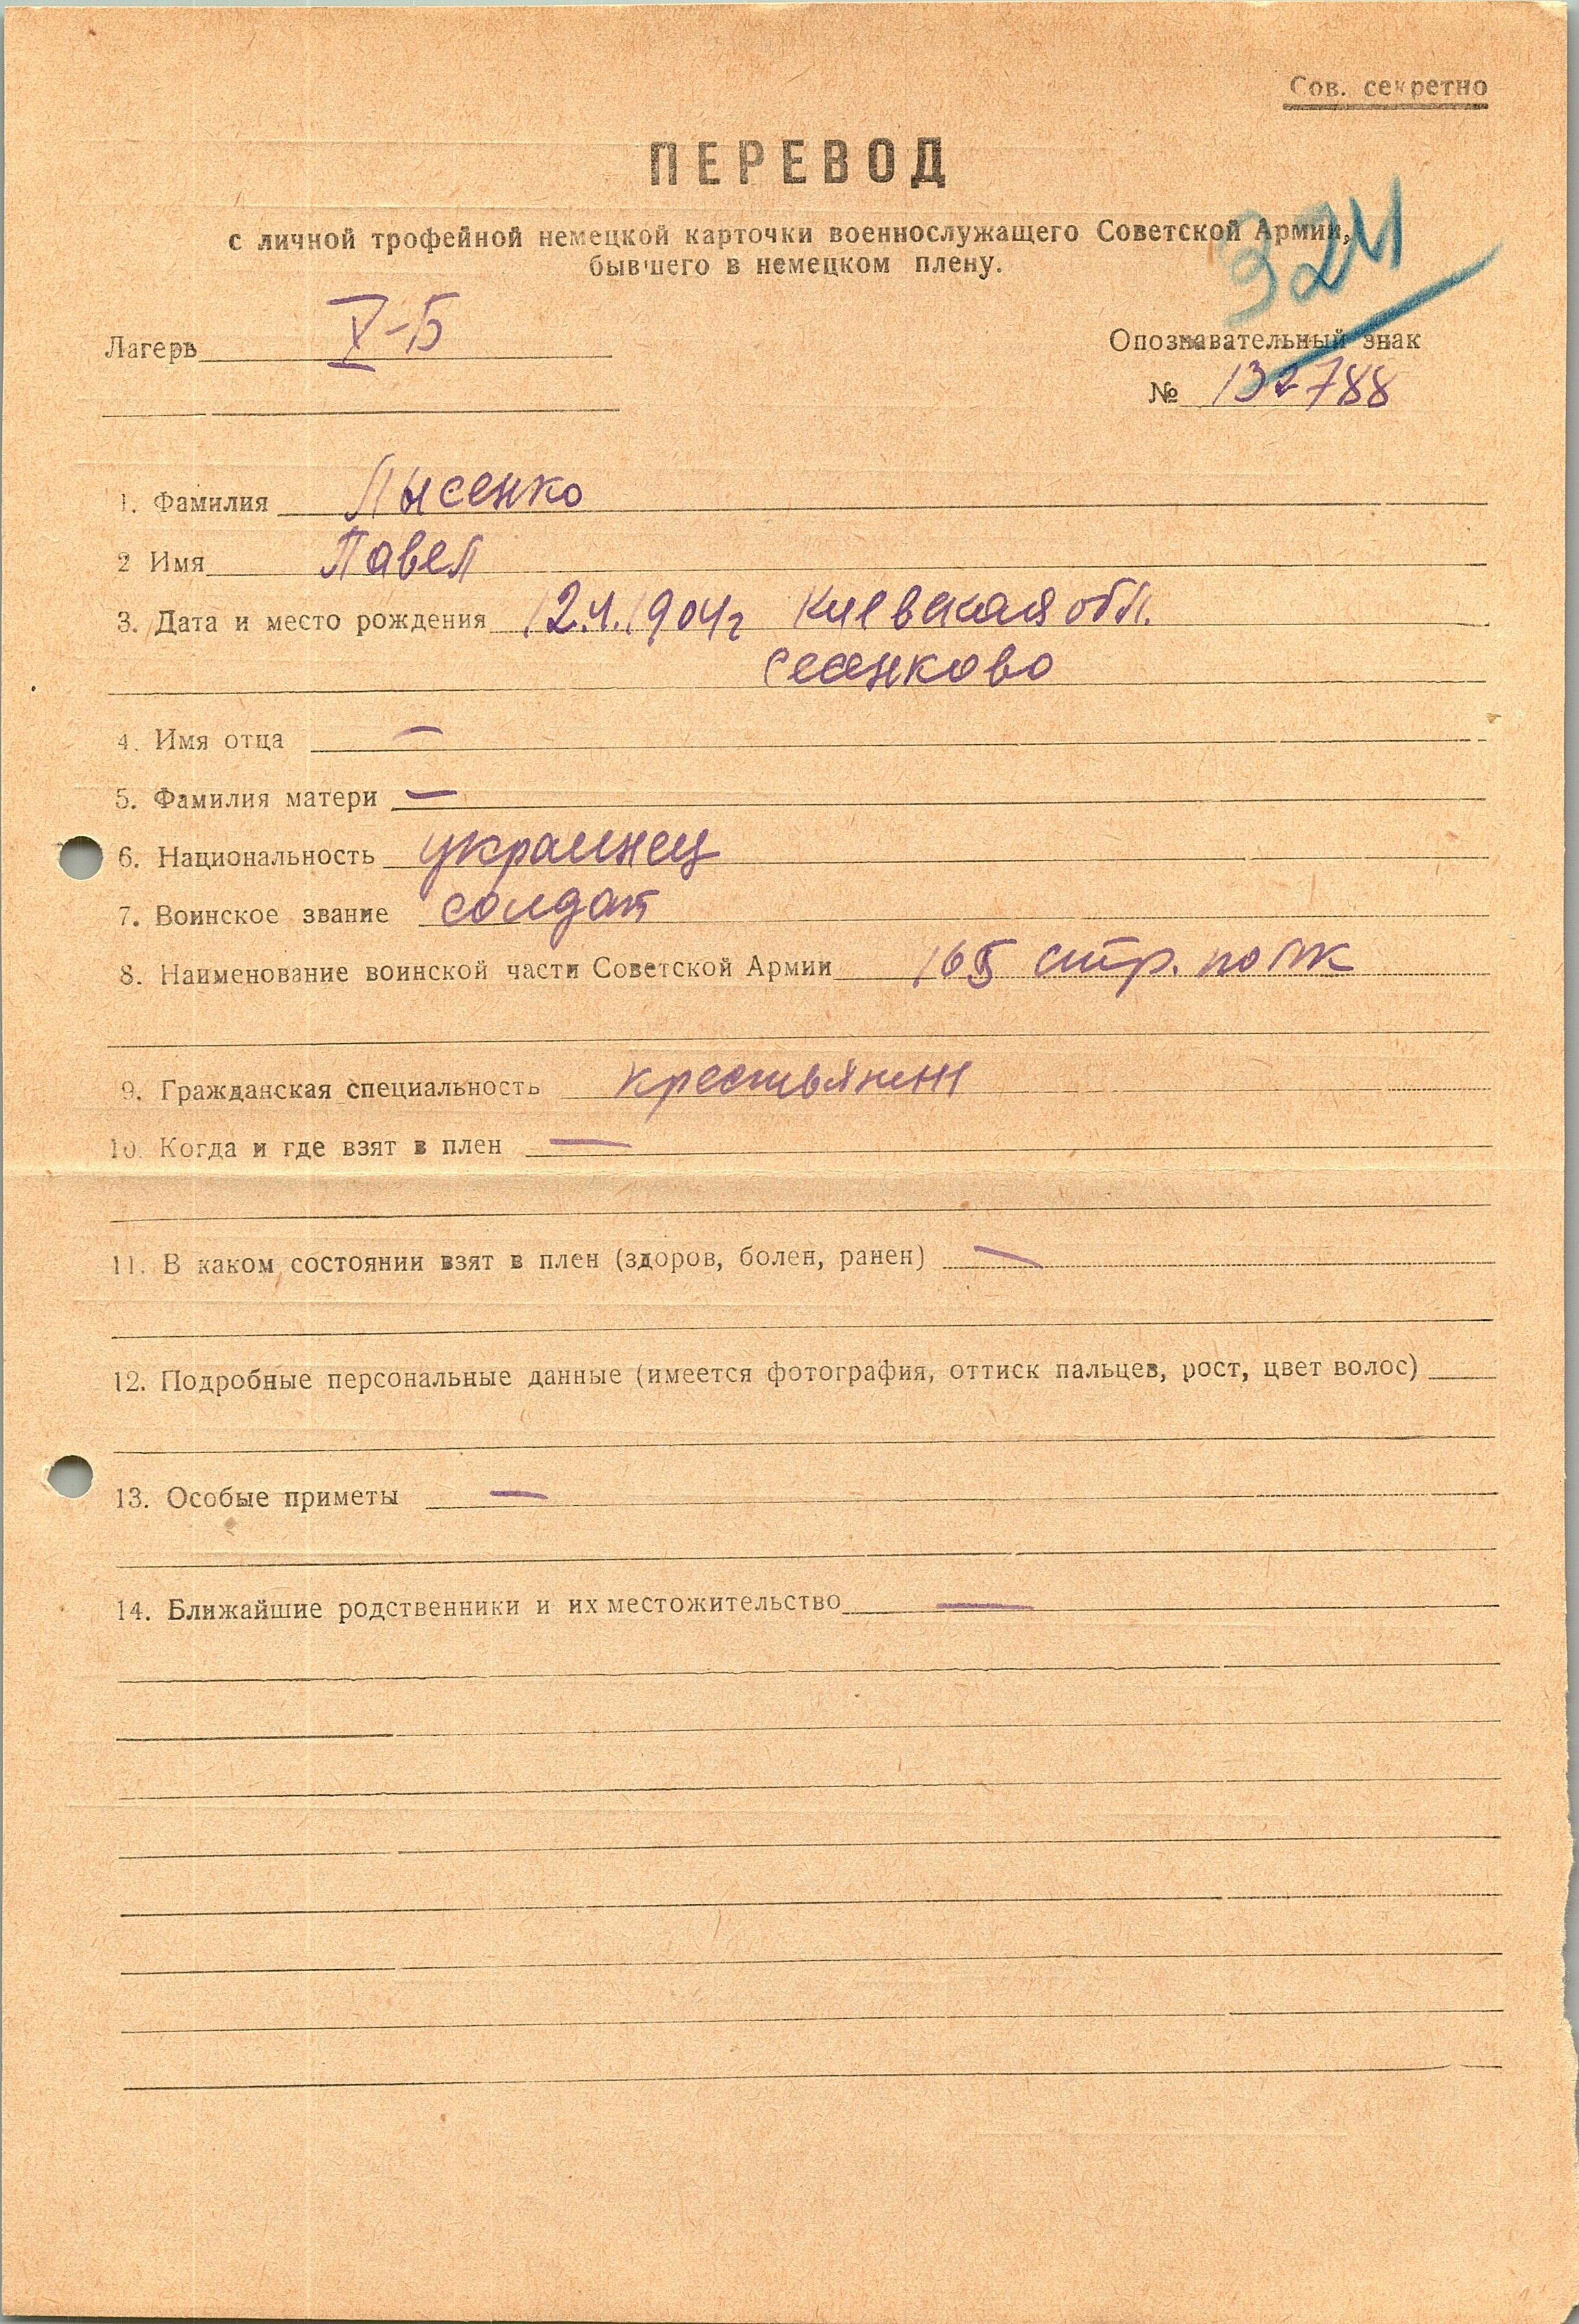 Сов. секретно
ПЕРЕВОД
с личной трофейной немецкой карточки военнослужащего Советской Армии,
бывшего в немецком плену.
324
Лагерь V-Б
Опознавательный знак
№ 132788
1. Фамилия Лысенко
2 Имя Павел
3. Дата и место рождения 12.4.1904г Киевская обл.
4. Имя отца —
5. Фамилия матери —
6. Национальность украинец
7. Воинское звание солдат
8. Наименование воинской части Советской Армии 165 стр. полк
9. Гражданская специальность крестьянин
10. Когда и где взят в плен —
11. В каком состоянии взят в плен (здоров, болен, ранен) —
12. Подробные персональные данные (имеется фотография, оттиск пальцев, рост, цвет волос)
13. Особые приметы —
14. Ближайшие родственники и их местожительство —